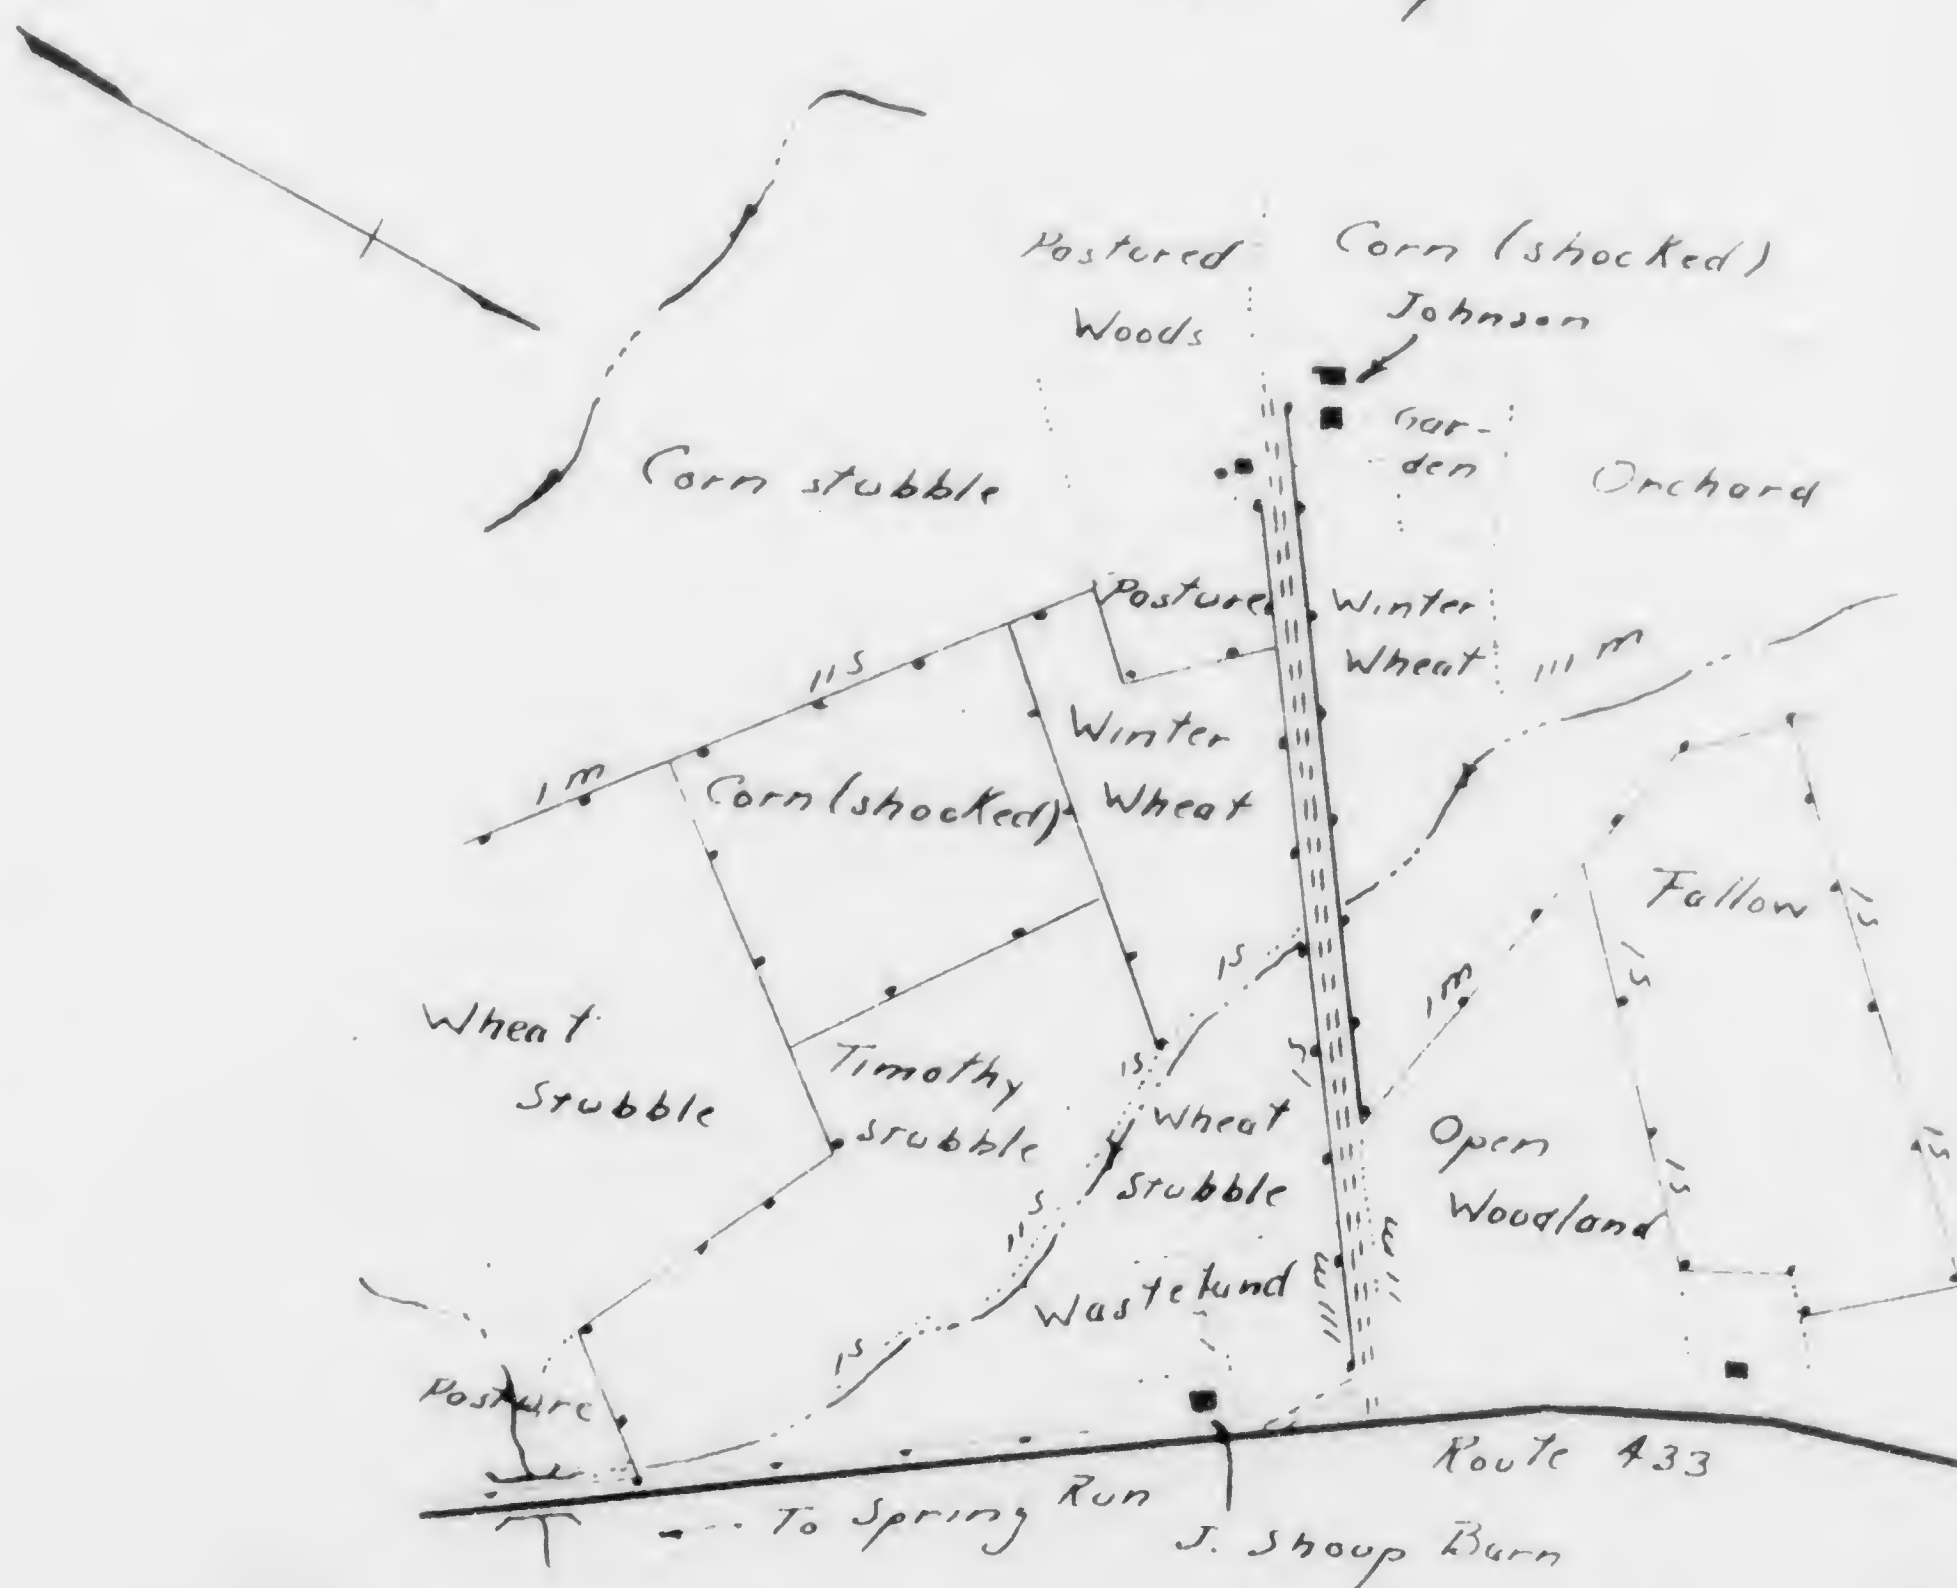 Pastured
Woods
Corn (shocked)
Johnson
Gar-
den
Orchard
Corn stubble
Pasture
Winter
Wheat
111 m
11 s
1 m
Corn (shocked)
Winter
Wheat
Fallow
1 s
1 s
1 s
1 m
Wheat
Stubble
Timothy
stubble
1 s
1 s
Wheat
Stubble
Open
Woodland
1 s
1 s
11 s
Wasteland
111 m
11 m
1 s
Pasture
Route 433
To Spring Run
J. Shoup Barn